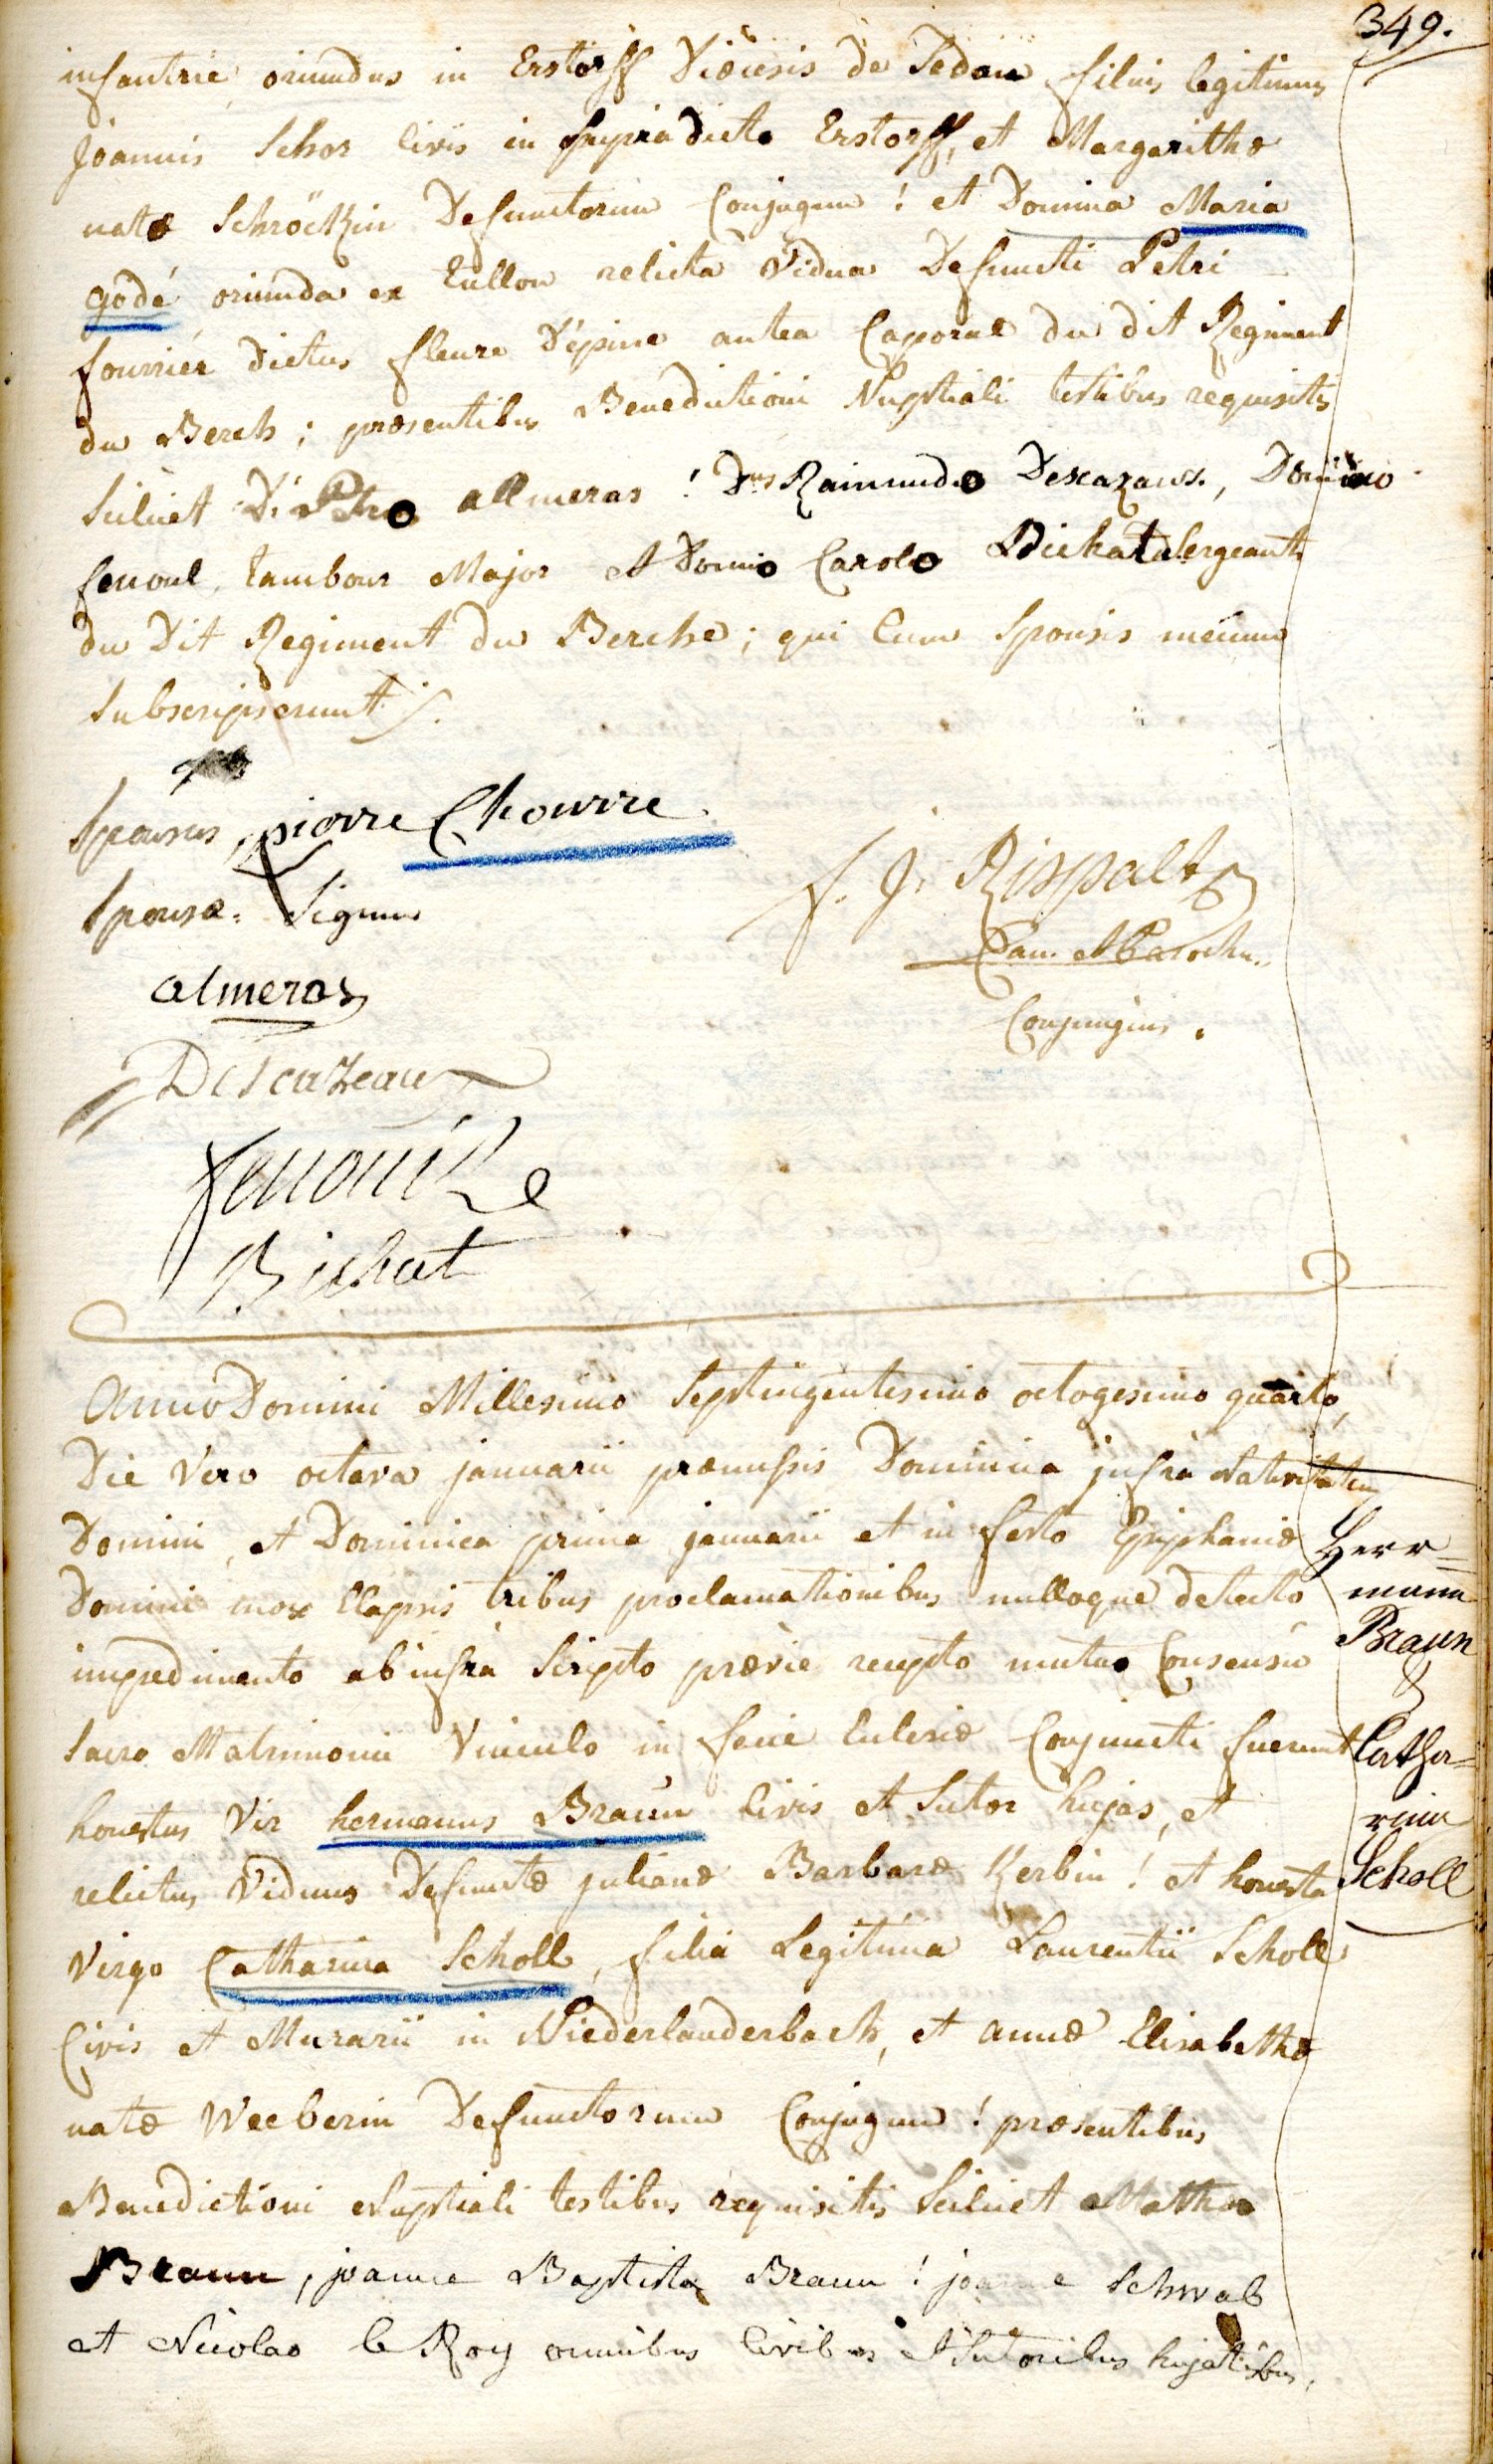 349.
infantrie oriundus in Erstorff Diœcesis de Sedan filius legitimus
Joannis Schor Civis in supradicto Erstorff, et Margarithæ
natæ Schröckin Defunctorum Conjugum ! et Domina Maria
godé oriunda ex Tullon relicta Vidua Defuncti Petri
fourrier dictus fleure D'épine antea Caporal du dit Regiment
du Berch ; præsentibus Benedictioni Nuptiali testibus requisitis
Scilicet D: Petro allmeras ! Dno Raimundo Descazaux, Domino
fenoul, tambour Major et Domino Carolo Bichat Sergeant
du Dit Regiment du Berche ; qui Cum Sponsis mecum
Subscripserunt ./.
Sponsus pierre Chourre
Sponsæ. Signum
almeras
Descazeaux
fenouille
Bichat
f. J. Rispalt
Can. et Parochus
Conjungens .
Anno Domini Millesimo Septingentesimo octogesimo quarto,
Die Vero octava januarii præmissis Dominica infra Nativitatem
Domini, et Dominica prima januarii et in festo Epiphaniæ
Domini mox Elapsis tribus proclamationibus nulloque detecto
impedimento ab infra Scripto prævie recepto mutuo Consensu
Sacro Matrimonii Vinculo in facie Eclesiæ Conjuncti fuerunt
honestus Vir hermanus Braun Civis et Sutor hujas, et
relictus Viduus Defunctæ julianæ Barbaræ Kerbin ! et honesta
Virgo Catharina Scholl, filia Legitima Laurentii Scholl
Civis et Murarii in Niederlauderbach, et annæ Elisabethæ
natæ Weeberin Defunctorum Conjugum ! præsentibus
Benedictioni Nuptiali testibus requisitis Scilicet Matheo
Braun, joanne Baptista Braun ! joanne Schwab
et Nicolao le Roy omnibus Civibus et Sutoribus hujatibus,
Herr=
mann
Braun
&
Catha=
rina
Scholl